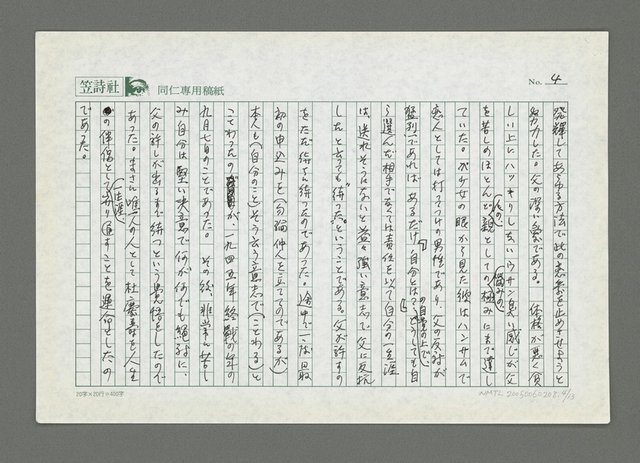 笠詩社 同仁専用稿紙
No. 4
発揮してあらゆる方法で此の恋愛を止めさせようと
努力した。父の深い愛である。 体格が悪く貧
しい上にハッキリしないウサン臭い感じが父
を苦しめほとんど親としての悩みの極みにまで達し
ていた。だが女の眼から見た彼はハンサムで
恋人としては打ってつけの男性であり父の反対が
猛烈であればあるだけ「自分とはどうしても自
ら選んだ相手でなくては責任を以て自分の生涯
は送れそうにない」と益々強い意志で父に反抗
したと云ても"待った"ということである。父が許すの
をただ待ち待ったのであった。途中で一度は最
初の申込みを(勿論仲人を立てゝのであるが)
本人も(自分のこと)そう云う意志で(ことわる)と
ことわったのが、一九四五年終戦の年の
九月七日のことであった。 その後、非常に苦し
み自分は堅い決意で何が何でも絶対に、
父の許しが出るまで待つという覚悟をしたので
あった。まさに唯一人の人として杜慶壽を人生
の伴侶として一生涯過すことを運命としたの
であった。
20字×20行=400字
NMTL 20050060208 4/13